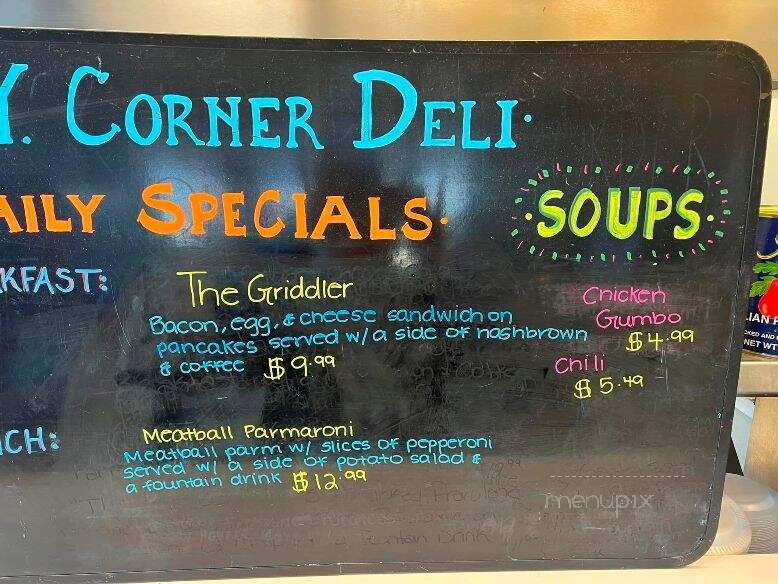 Y. CORNER DELI.
AILY SPECIALS.
SOUPS.
KFAST:
The Griddler
Bacon, egg, & cheese sandwich on
pancakes served w/ a side of hashbrown
& coffee $9.99
Chicken
Gumbo
$4.99
Chili
$5.49
CH:
Meatball Parmaroni
Meatball parm w/ slices of pepperoni
served w/ a side of potato salad &
a fountain drink $12.99
menupix
LIAN P
NET WT